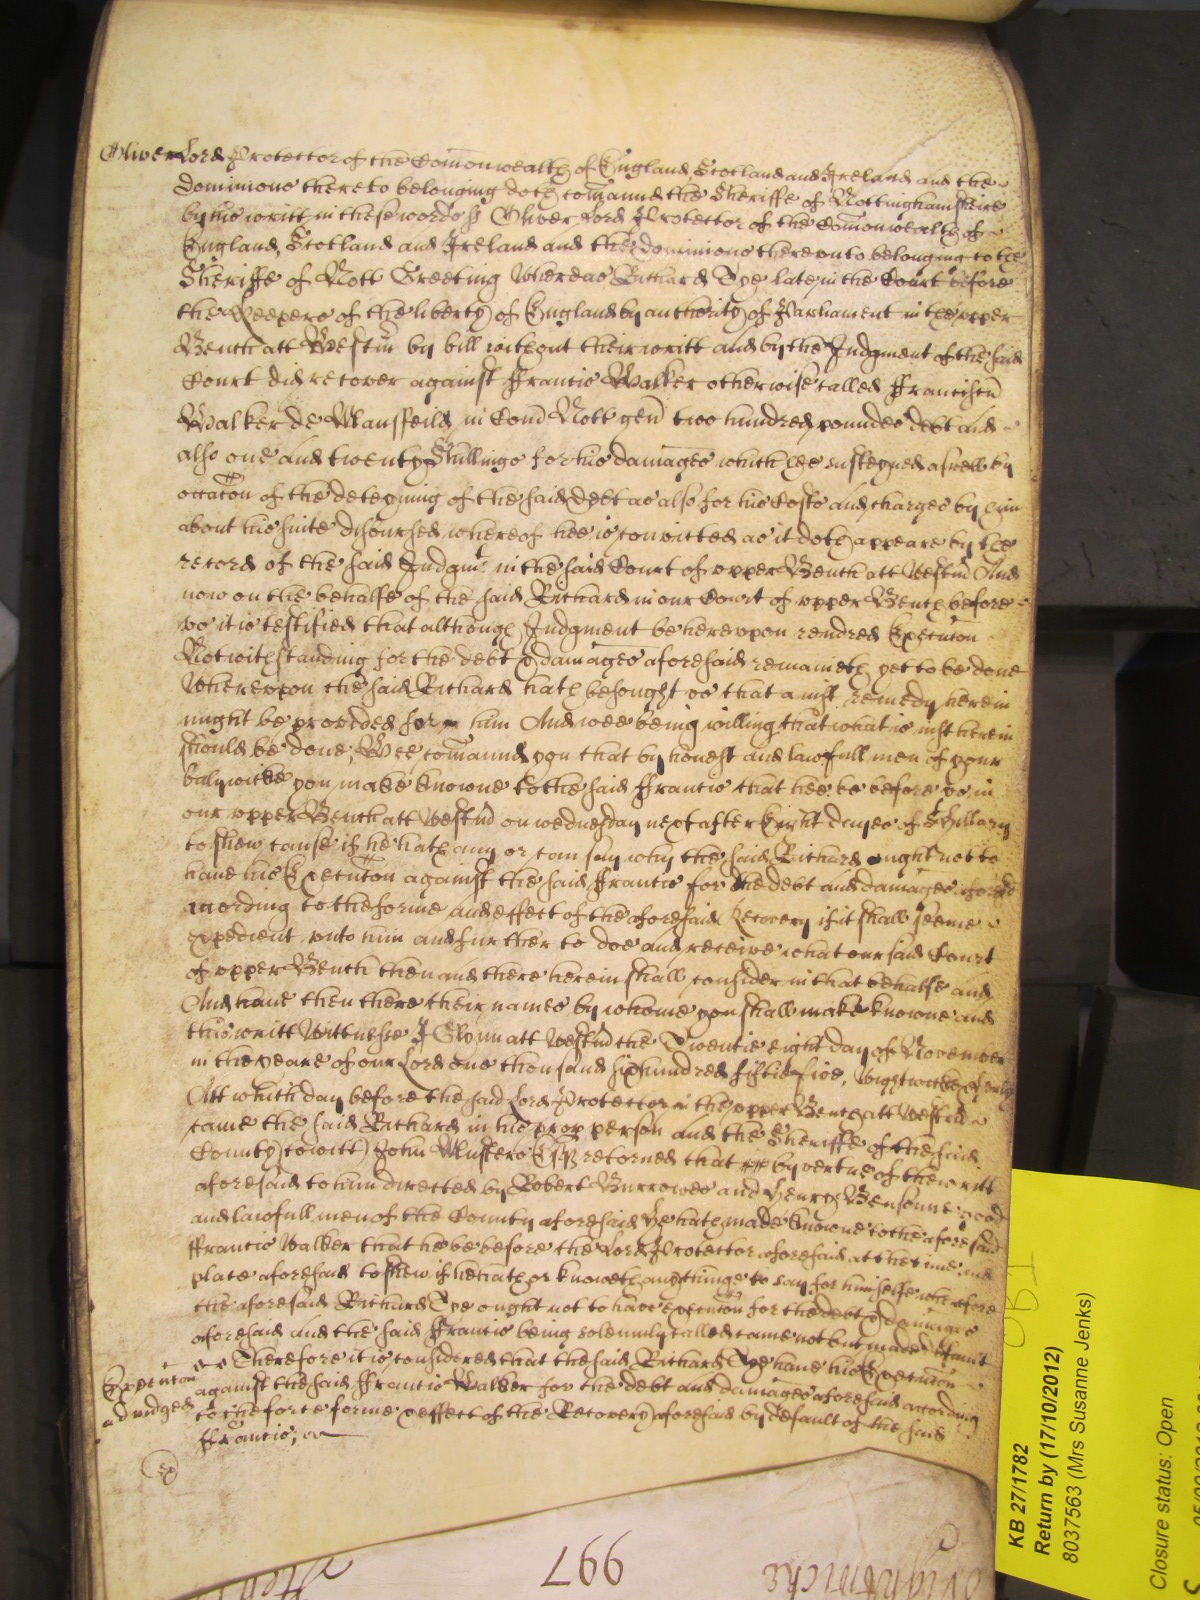 Oliver Lord Protector of the Com̄onwealth of England, Scotland and Ireland and the
dominions thereto belonging doth com̄annd the Sheriffe of Nottinghamsheire
by his writt in these words ss Oliver Lord Protector of the Com̄onwealth of
England, Scotland and Ireland and the dominions thereunto belonging to the
Sheriffe of Nott Greeting Whereas Richard Dye late in the Court before
the Keepers of the liberty of England by authority of Parliament in the upper
Bench att Westm̄ by bill without their writt and by the Judgment of the said
Court did recover against ffrancis Walker otherwise called ffranciscu
Walker de Mansfeild in Com̄ Nott gen̄ two hundred pounds debt and
also one and twenty Shillings for his damages which hee susteyned aswell by
occac̄on of the deteyning of the said debt as also for his Costs and charges by him
about his suite disbursed whereof hee is convicted as it doth appeare by the
record of the said Judgmt in the said Court of upper Bench att Westm̄ And
now on the behalfe of the said Richard in our Court of upper Bench before
us it is testified that although Judgment be hereupon rendred Execuc̄on
Notwithstanding for the debt & damages aforesaid remaineth yet to be done
Whereupon the said Richard hath besought us that a just remedy herein
might be provided for him And wee being willing that what is just herein
should be done, Wee com̄annd you that by honest and lawfull men of your
baliwicke you make knowne to the said ffrancis that hee be before us in
our upper Bench att Westm̄ on wednesday next after Eight dayes of St Hillary
to shew cause if he hath any or can say why the said Richard ought not to
have his Execuc̄on against the said ffrancis for the debt and damages aforesd
according to the forme and effect of the aforesaid Recovery if it shall seeme
expedient unto him and further to doe and receive what our said Court
of upper Bench then and there herein shall consider in that behalfe and
And have then there their names by whome you shall make knowne and
this writt Wittnesse J Glynn att Westm̄ the Twentie eight day of November
in the yeare of our Lord one thousand six hundred fiftie five, Wightwicke
Att which day before the said Lord Protector in the upper Bench att Westm̄
came the said Richard in his proper person and the Sheriffe of the said
County (to witt) John Musters Esqr retorned that by vertue of the writt
aforesaid to him directed by Robert Burrowes and Henry Bensonne good
and lawfull men of the County aforesaid he hath made knowne to the aforesaid
ffrancis Walker that he be before the Lord Protector aforesaid at the time and
place aforesaid to shew if he hath or knoweth any thinge to say for himselfe wherefore
the aforesaid Richard Dye ought not to have execuc̄on for the debt & damages
aforesaid and the said ffrancis being solemnly called came not but made default
Therefore it is considered that the said Richard Dye have his Execuc̄on
Execuc̄on
adiudged
against the said ffrancis Walker for the debt and damages aforesaid according
to the force forme & effect of the Recovery aforesaid by default of the said
ffrancis,
997
Wightwicke
KB 27/1782
Return by (17/10/2012)
8037563 (Mrs Susanne Jenks)
Closure status: Open